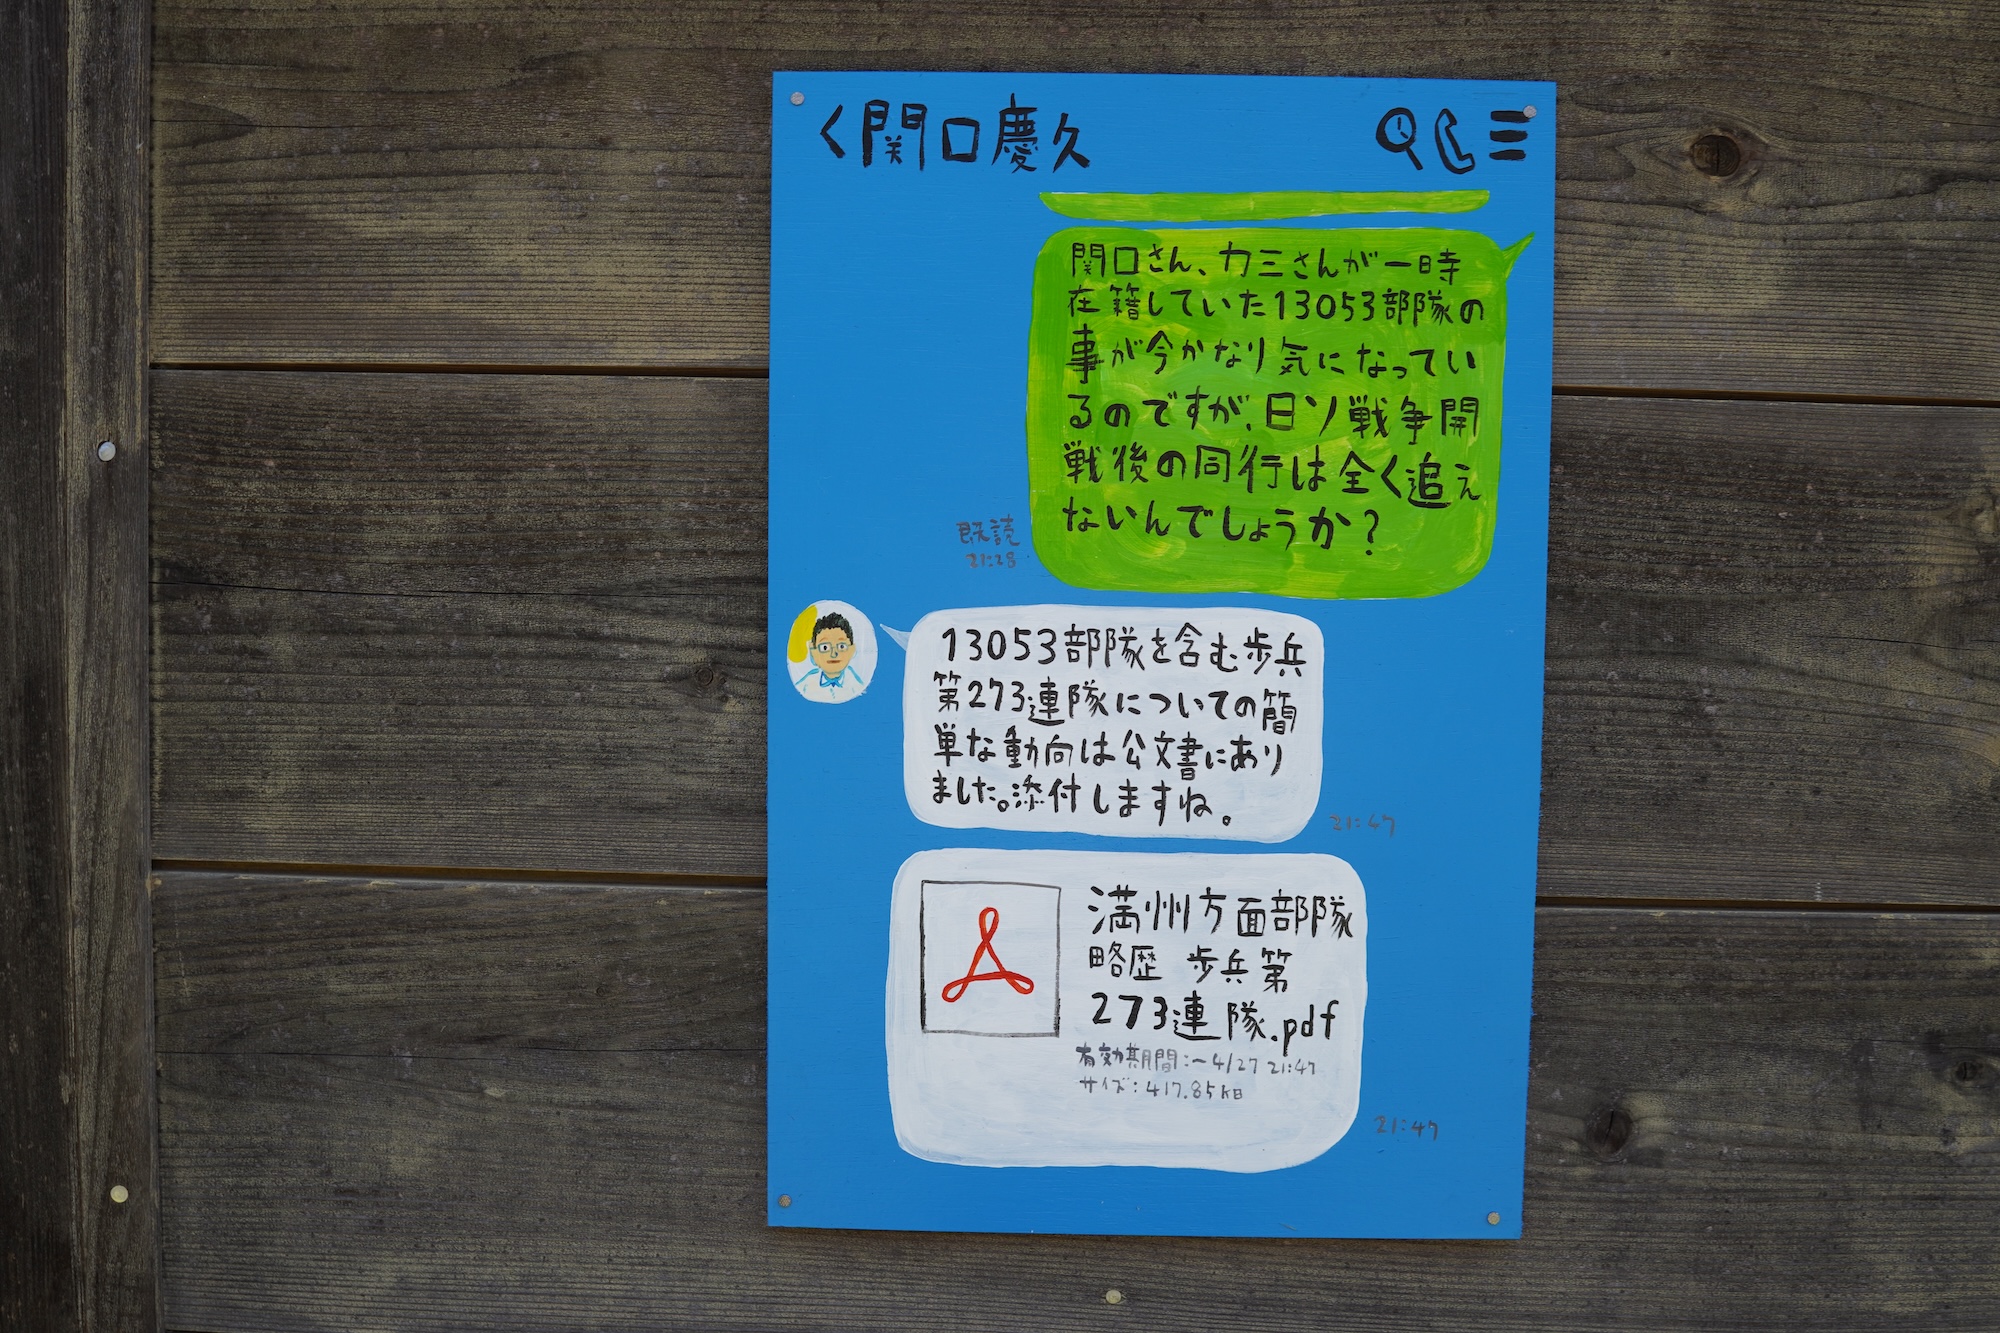 く関口慶久
関口さん、カミさんが一時
在籍していた13053部隊の
事が今かなり気になってい
るのですが、日ソ戦争開
戦後の同行は全く追え
ないんでしょうか?
既読
21:28
13053部隊を含む歩兵
第273連隊についての簡
単な動向は公文書にあり
ました。添付しますね。
21:47
満州方面部隊
略歴 歩兵第
273連隊.pdf
有効期間:~4/27 21:47
サイズ:417.85KB
21:47